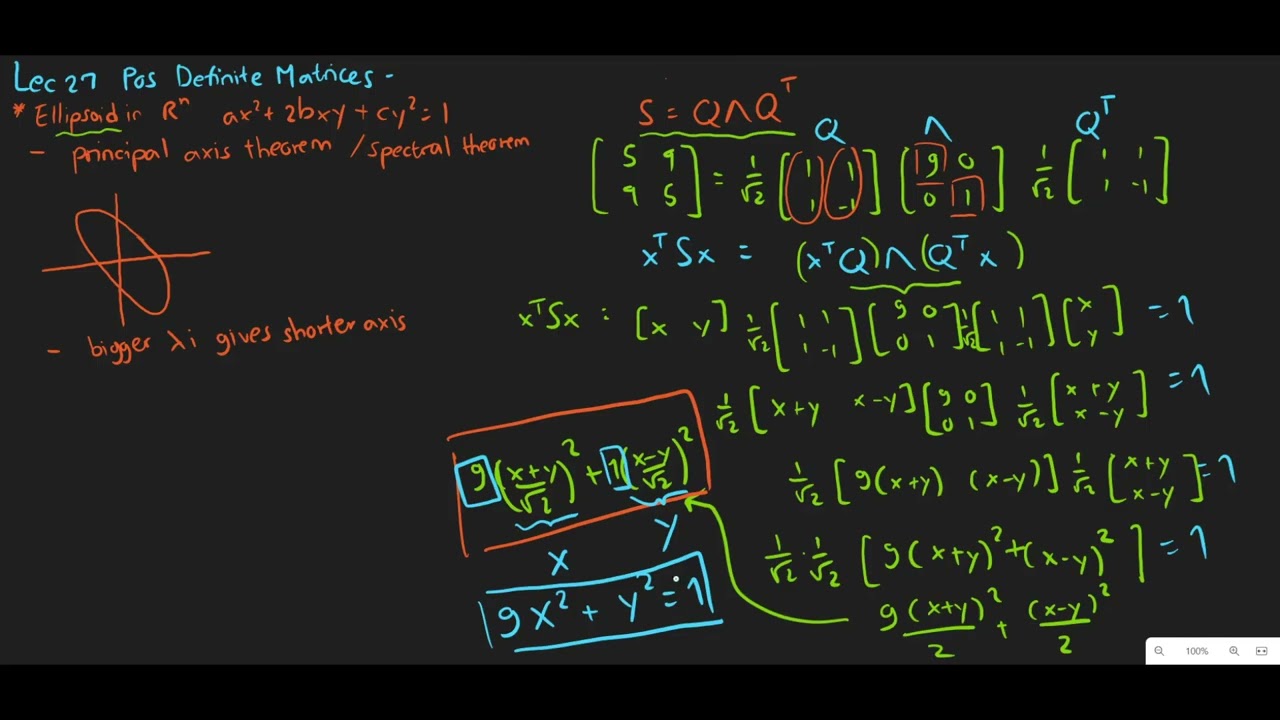 Lec 27 Pos Definite Matrices -
* Ellipsoid in Rⁿ ax² + 2bxy + cy² = 1
- principal axis theorem / spectral theorem
- bigger λi gives shorter axis
S = QΛQᵀ
Q Λ Qᵀ
[5 9; 9 5] = 1/√2 [1 1; 1 -1] [9 0; 0 1] 1/√2 [1 1; 1 -1]
xᵀSx = (xᵀQ)Λ(Qᵀx)
xᵀSx : [x y] 1/√2 [1 1; 1 -1] [9 0; 0 1] 1/√2 [1 1; 1 -1] [x; y] = 1
1/√2 [x+y x-y] [9 0; 0 1] 1/√2 [x+y; x-y] = 1
1/√2 [9(x+y) (x-y)] 1/√2 [x+y; x-y] = 1
1/√2 · 1/√2 [9(x+y)² + (x-y)²] = 1
9(x+y)²/2 + (x-y)²/2
9((x+y)/√2)² + 1((x-y)/√2)²
X Y
9X² + Y² = 1
100%